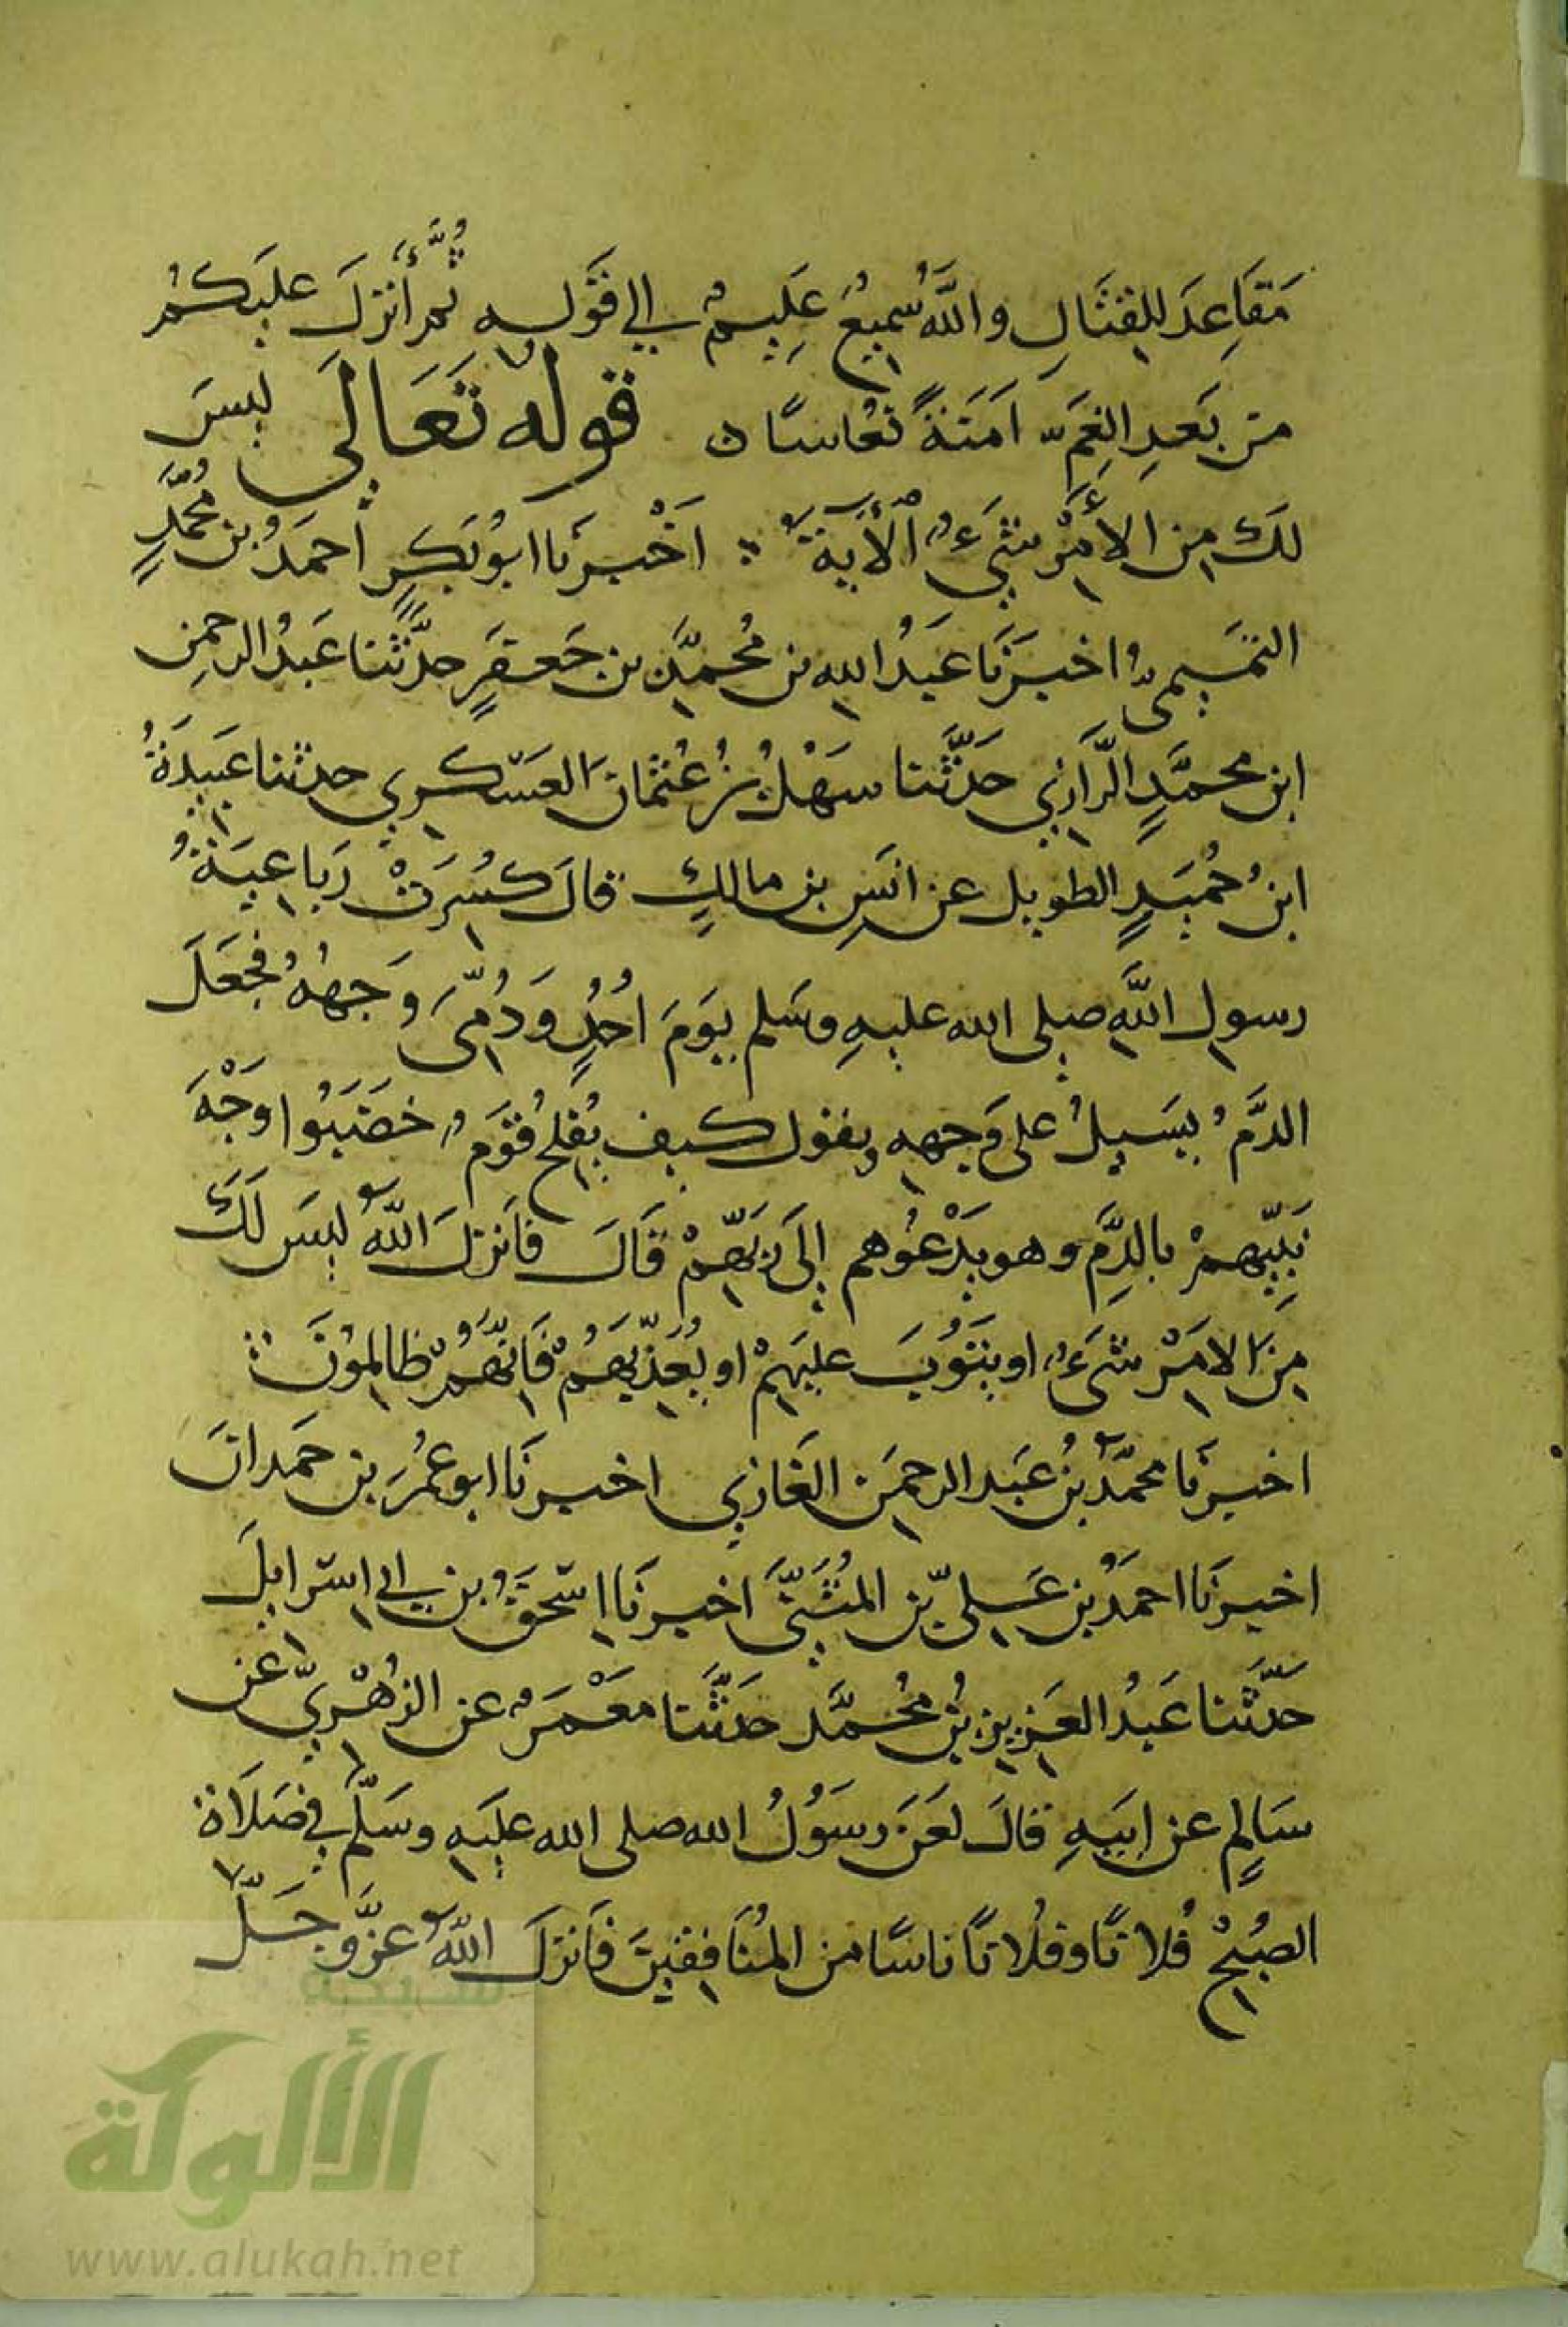 مَقَاعِدَ لِلقِتَالِ وَاللَّهُ سَمِيعٌ عَلِيمٌ الي قَوله ثُمَّ أَنزَلَ عليكُم
من بَعدِ الغَمِّ اَمَنَةً نُعَاسًا ه قوله تَعَالَى ليسَ
لَكَ مِن الأَمْرِ شَيءٌ الآية اَخْبَرنَا ابُو بَكرٍ احمَدُ بن مُحمَّدٍ
التمَيمىُّ اخبَرَنَا عَبدُ الله بن مُحمَّدِ بن جَعفَرٍ حدَّثنا عَبدُ الرحمنِ
ابن محمَّدٍ الرَّازي حَدَّثنا سَهْلُ بنُ عُثمَانَ العَسكري حدثنا عَبِيدَةُ
ابنُ حُمَيدٍ الطويل عن انَسِ بن مالكٍ قالَ كُسِرَتْ رَبَاعِيَةُ
رسولِ اللَّهِ صلى الله عليهِ وسَلم يَومَ اُحُدٍ وَدُمِّىَ وَجهُهُ فجَعَلَ
الدَّمُ يَسيلُ على وَجهِهِ ويقول كيف يُفلِحُ قَومٌ خضَبُوا وَجْهَ
نَبِيِّهِمْ بالدَّمِ وهو يَدْعُوهم إلَى رَبِّهِمْ قَالَ فَاَنزلَ اللَّهُ ليسَ لَكَ
مِنَ الامَرْ شَىءٌ او يَتُوبَ عليهِمْ او يُعَذِّبَهُمْ فَاِنَّهُمْ ظالِمُونَ
اخبرنَا محمَّدُ بنُ عَبد الرحمَن الغَازِي اخبرنَا ابو عمُرَ بن حَمدانَ
اخبرنَا احمَدُ بن عَليِّ بن المثَنَّى اخبرنَا اسحَقُ بن ابي اسرايلَ
حَدَّثنا عَبدُ العَزيزِ بنُ مُحمَّد حَدَّثنا مَعْمَرٌ عن الزهْرِيِّ عن
سَالِمٍ عن ابِيهِ قالَ لَعَنَ رسَوُلُ الله صلى الله عليَهِ وسَلَّمَ في صَلَاة
الصُبْحِ فُلانًا وفُلانًا نَاسًا من المُنَافِقينَ فَاَنزلَ اللَّهُ عزَّ وَجَلَّ
شبكة
الألوكة
www.alukah.net